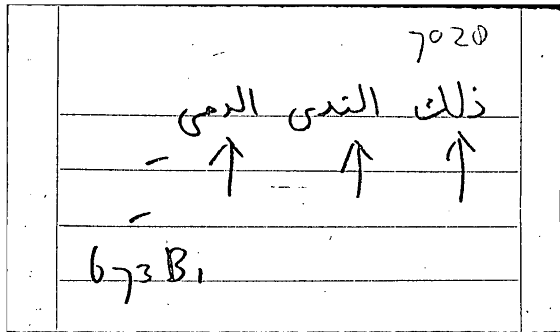 7020
ذلك الندى الدمى
673B1